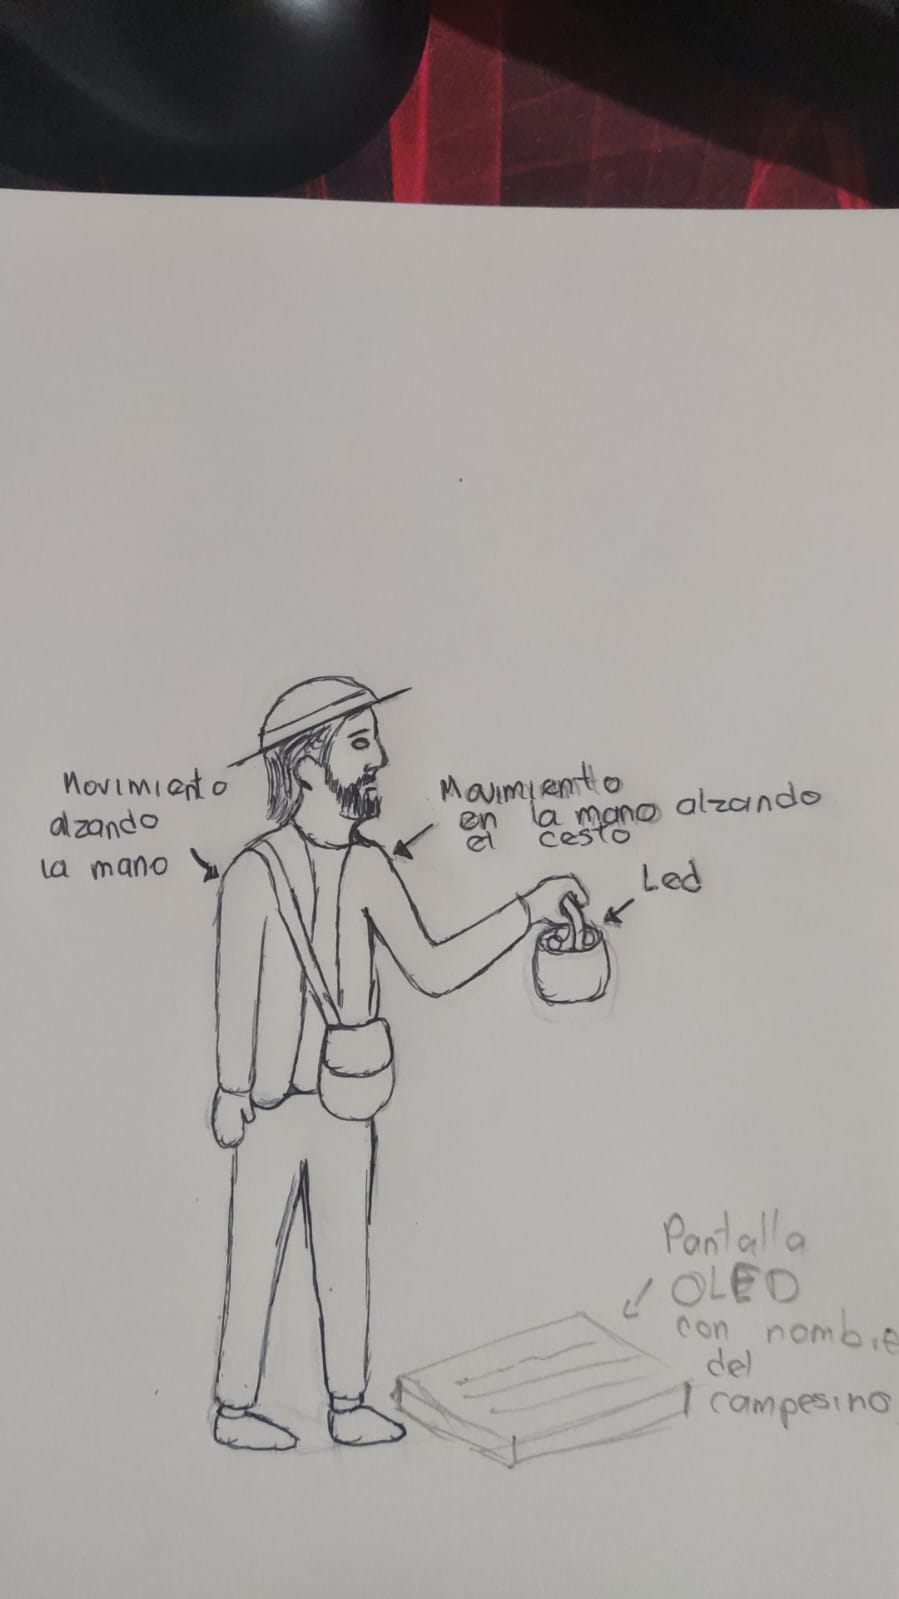 Movimiento
alzando
la mano
Movimiento
en la mano alzando
el cesto
Led
Pantalla
OLED
con nombre
del
campesino